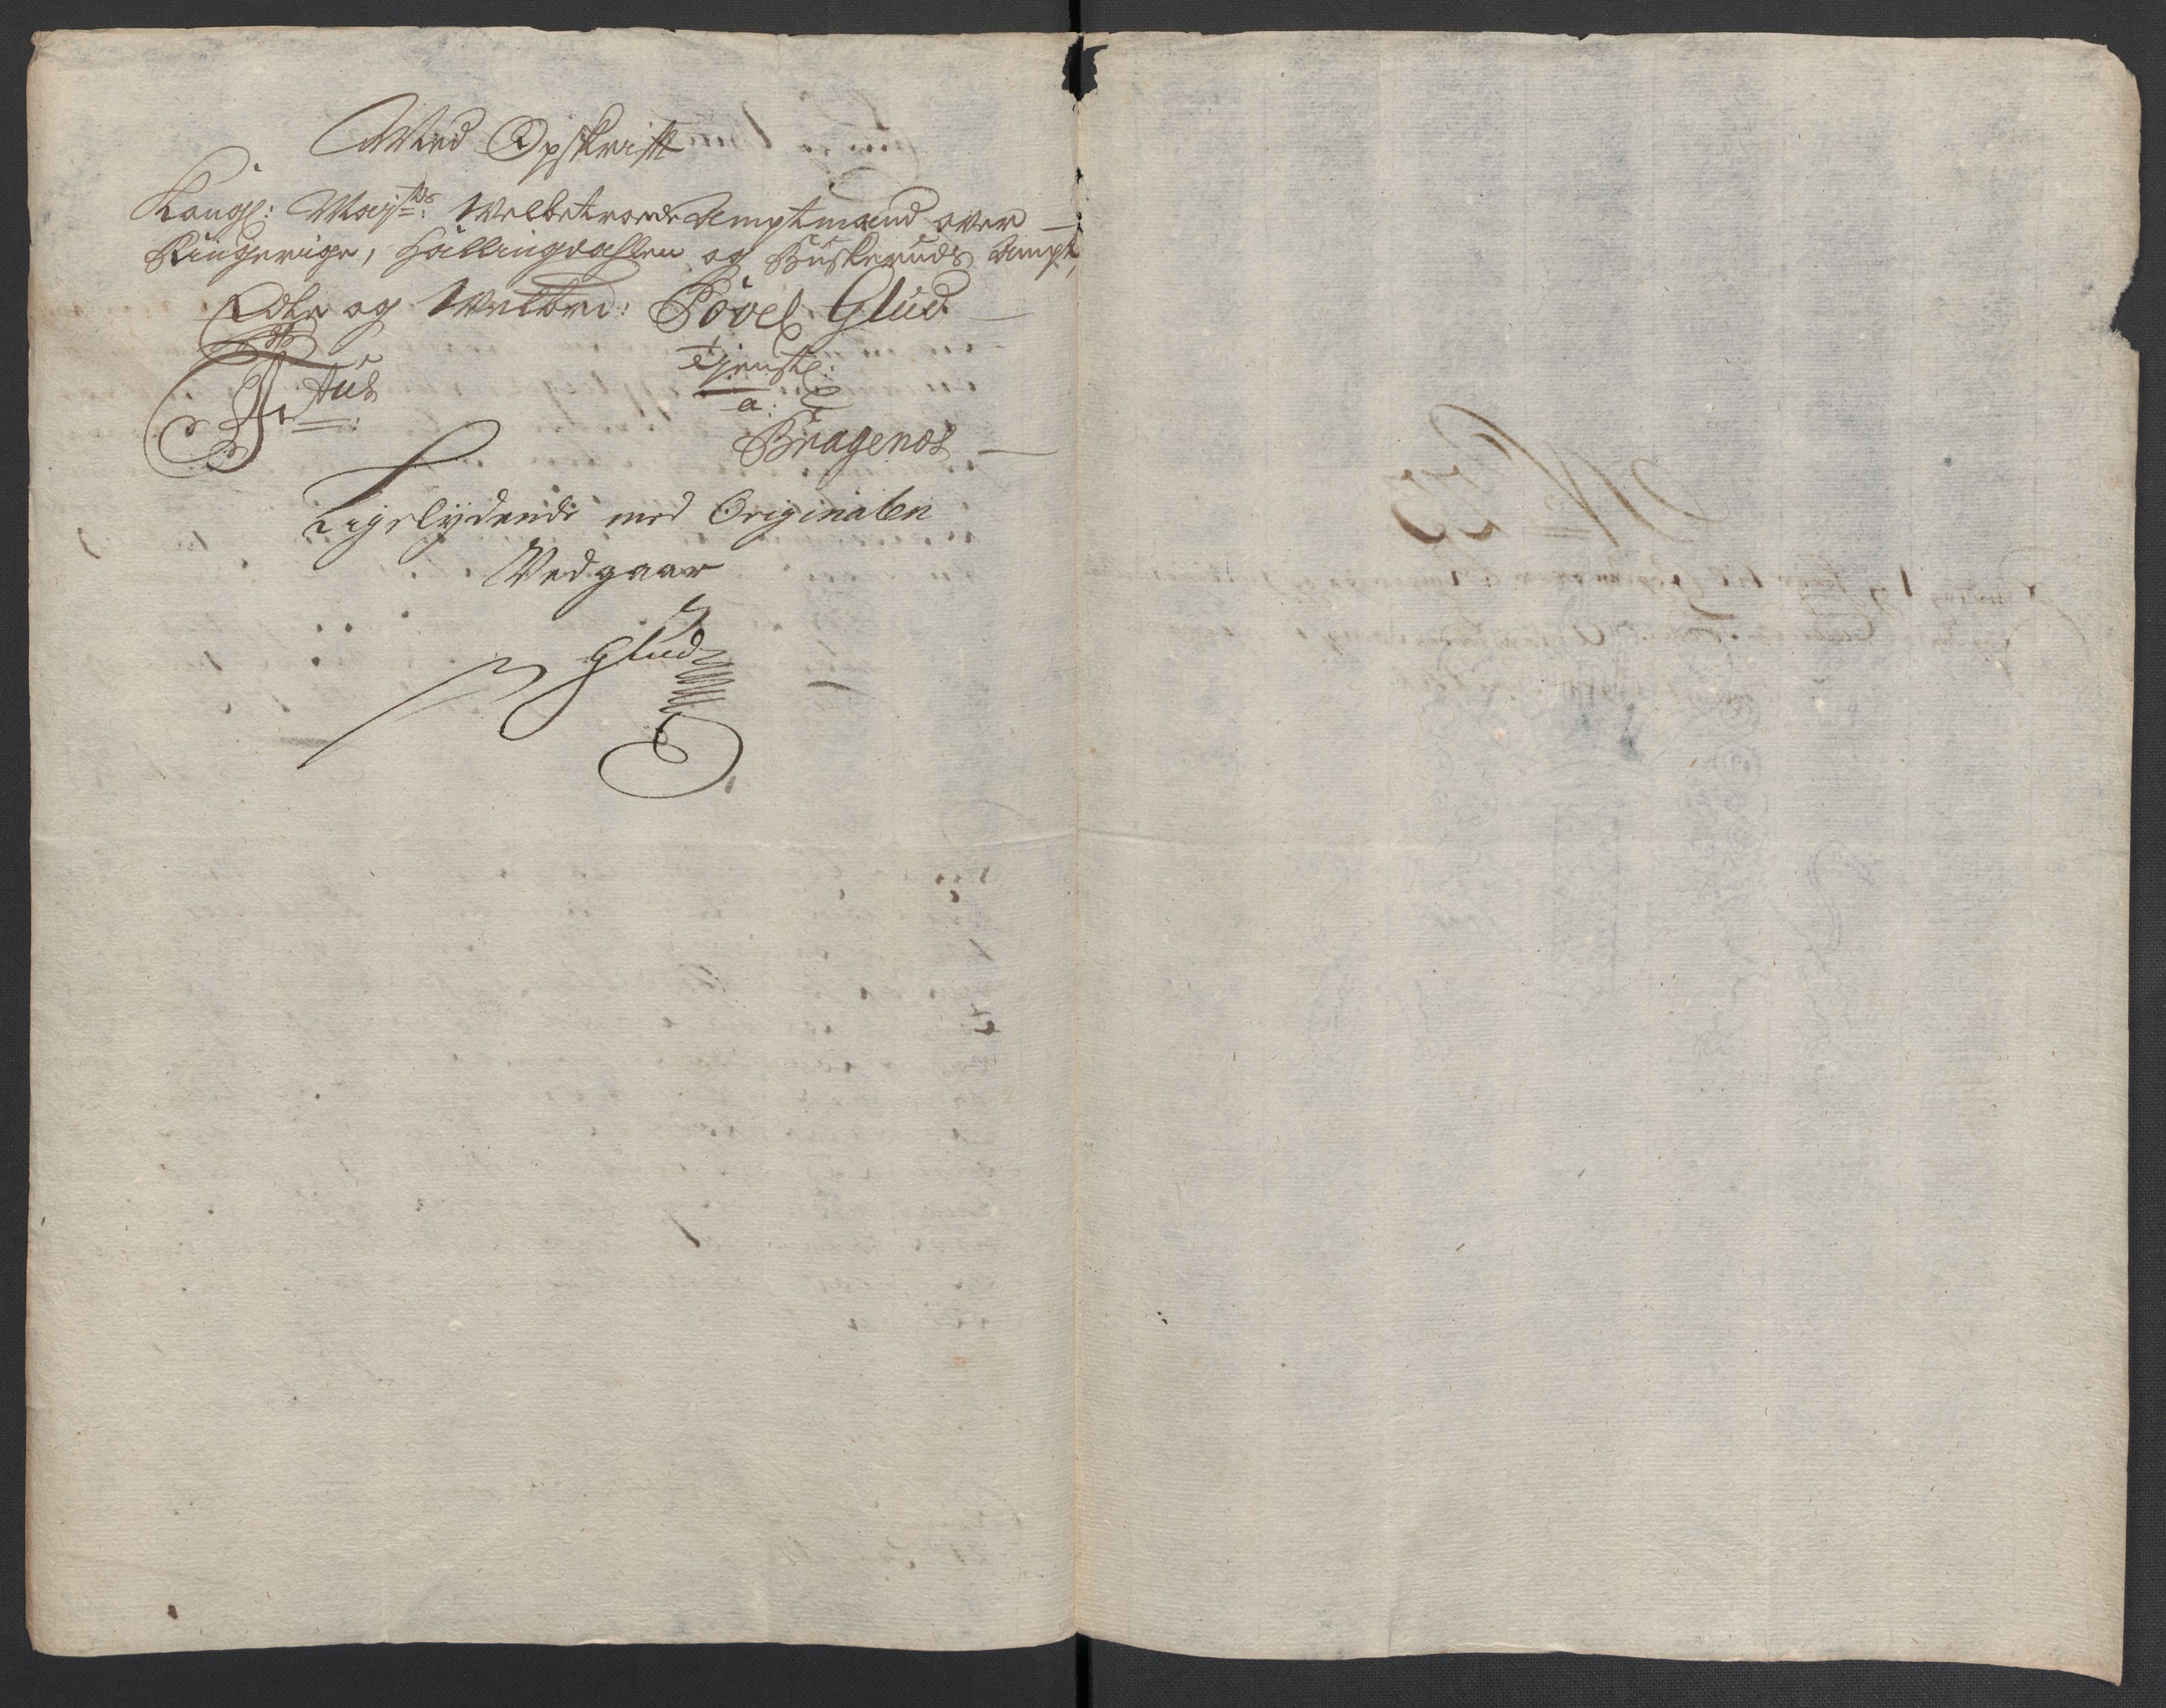 Med Opskrifft
Kongl: May:ts Welbetroede Amptmand over
Ringerige, Hallingdahlen og Buskeruds Ampt,
Edle og Welbrd: Povel Glud
Tjenstl:
a:
Bragenæs
Ligelydende med Originalen
Vedgaar
Glud